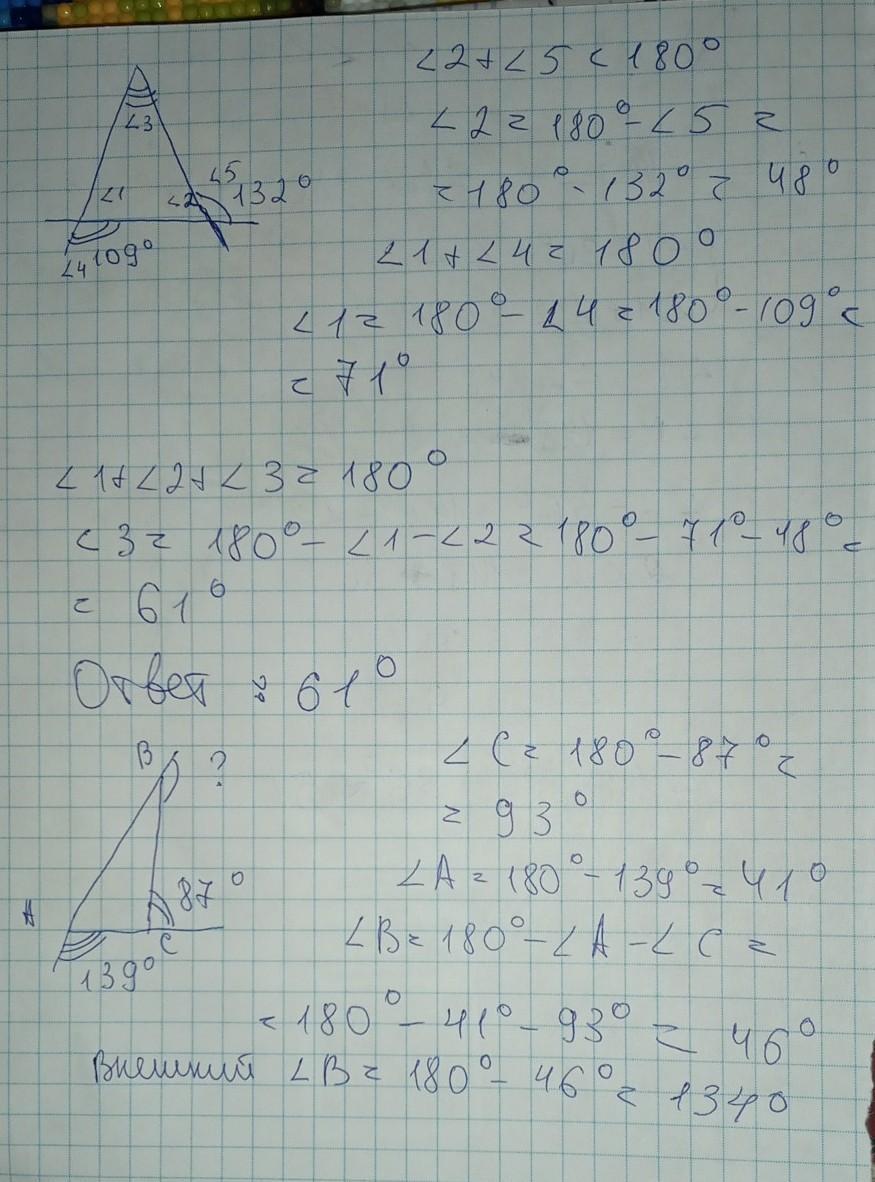 ∠3
∠1
∠2
∠5
132°
∠4 109°
∠2+∠5 = 180°
∠2 = 180° - ∠5 =
= 180° - 132° = 48°
∠1 + ∠4 = 180°
∠1 = 180° - ∠4 = 180° - 109° =
= 71°
∠1+∠2+∠3 = 180°
∠3 = 180° - ∠1 - ∠2 = 180° - 71° - 48° =
= 61°
Ответ : 61°
B ?
87°
A
C
139°
∠C = 180° - 87° =
= 93°
∠A = 180° - 139° = 41°
∠B = 180° - ∠A - ∠C =
= 180° - 41° - 93° = 46°
Внешний ∠B = 180° - 46° = 134°